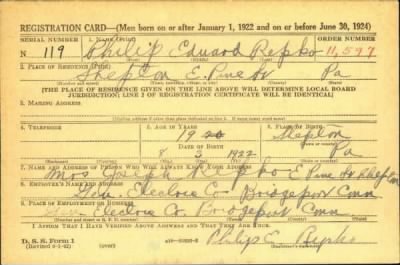 REGISTRATION CARD—(Men born on or after January 1, 1922 and on or before June 30, 1924)
SERIAL NUMBER 1. NAME (Print) ORDER NUMBER
N 119 Philip Eduard Repko 11,597
2. PLACE OF RESIDENCE (Print)
Shepton E. Pine St Pa
[THE PLACE OF RESIDENCE GIVEN ON THE LINE ABOVE WILL DETERMINE LOCAL BOARD
JURISDICTION; LINE 2 OF REGISTRATION CERTIFICATE WILL BE IDENTICAL]
3. MAILING ADDRESS
4. TELEPHONE 5. AGE IN YEARS 6. PLACE OF BIRTH
19 20 Shepton
DATE OF BIRTH
8 3 1922 Pa
7. NAME AND ADDRESS OF PERSON WHO WILL ALWAYS KNOW YOUR ADDRESS
Mrs Joseph E Pine St Shepton
8. EMPLOYER'S NAME AND ADDRESS
Gen. Electric Co. Bridgeport Conn
9. PLACE OF EMPLOYMENT OR BUSINESS
Electric Co. Bridgeport Conn
I AFFIRM THAT I HAVE VERIFIED ABOVE ANSWERS AND THAT THEY ARE TRUE.
D. S. S. Form 1
(over) Philip E